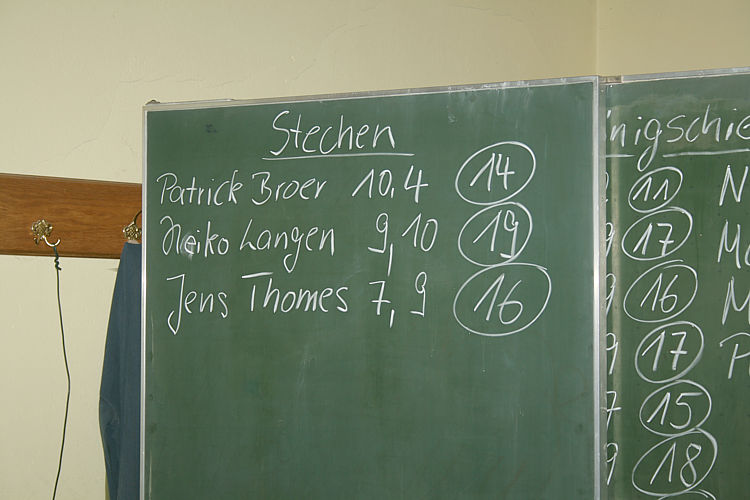 Stechen
Patrick Broer 10,4 14
Heiko Langen 9,10 19
Jens Thomes 7,9 16
nigschie
11 N
9 17 Me
9 16 M
9 17 P
7 15
9 18